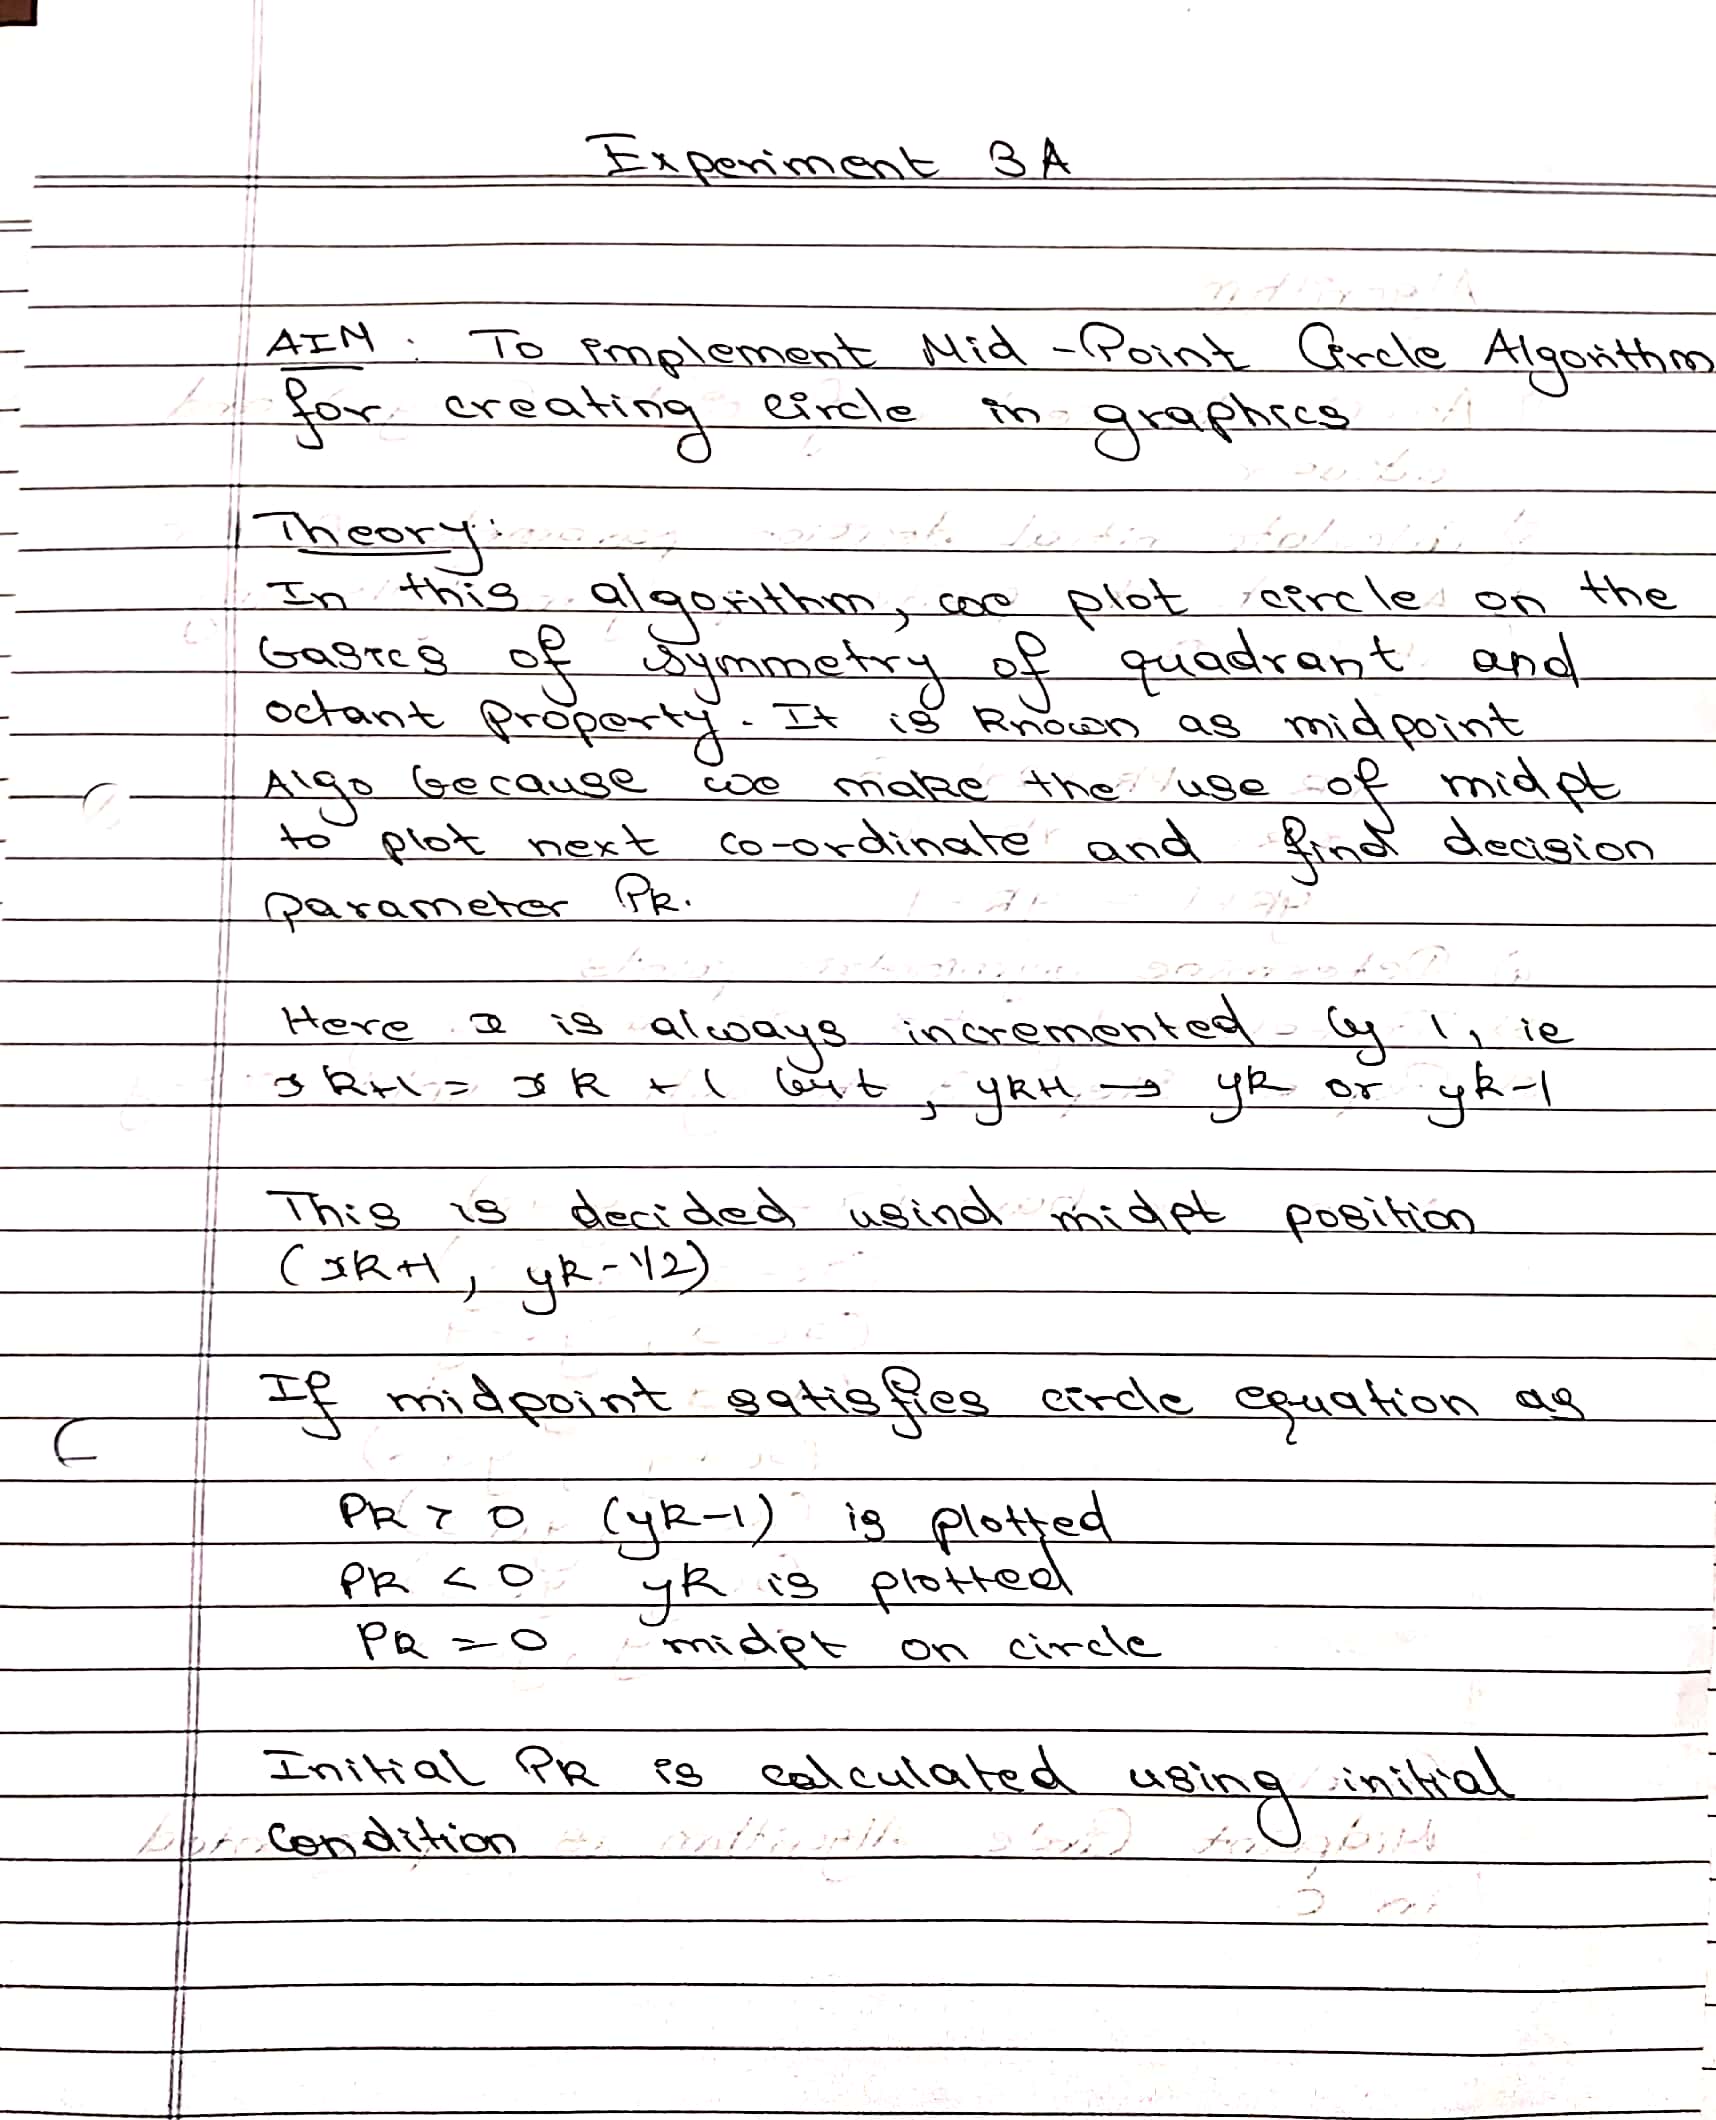 Experiment 3A
AIM : To implement Mid-Point Circle Algorithm
for creating circle in graphics
Theory:
In this algorithm, we plot circle on the
basics of symmetry of quadrant and
octant property. It is known as midpoint
Algo because we make the use of midpt
to plot next co-ordinate and find decision
parameter Pk.
Here x is always incremented by 1, ie
xk+1 = xk + 1 but, yk+1 → yk or yk-1
This is decided usind midpt position
(xk+1, yk-1/2)
If midpoint satisfies circle equation as
Pk > 0 (yk-1) is plotted
Pk < 0 yk is plotted
Pk = 0 midpt on circle
Initial Pk is calculated using initial
condition